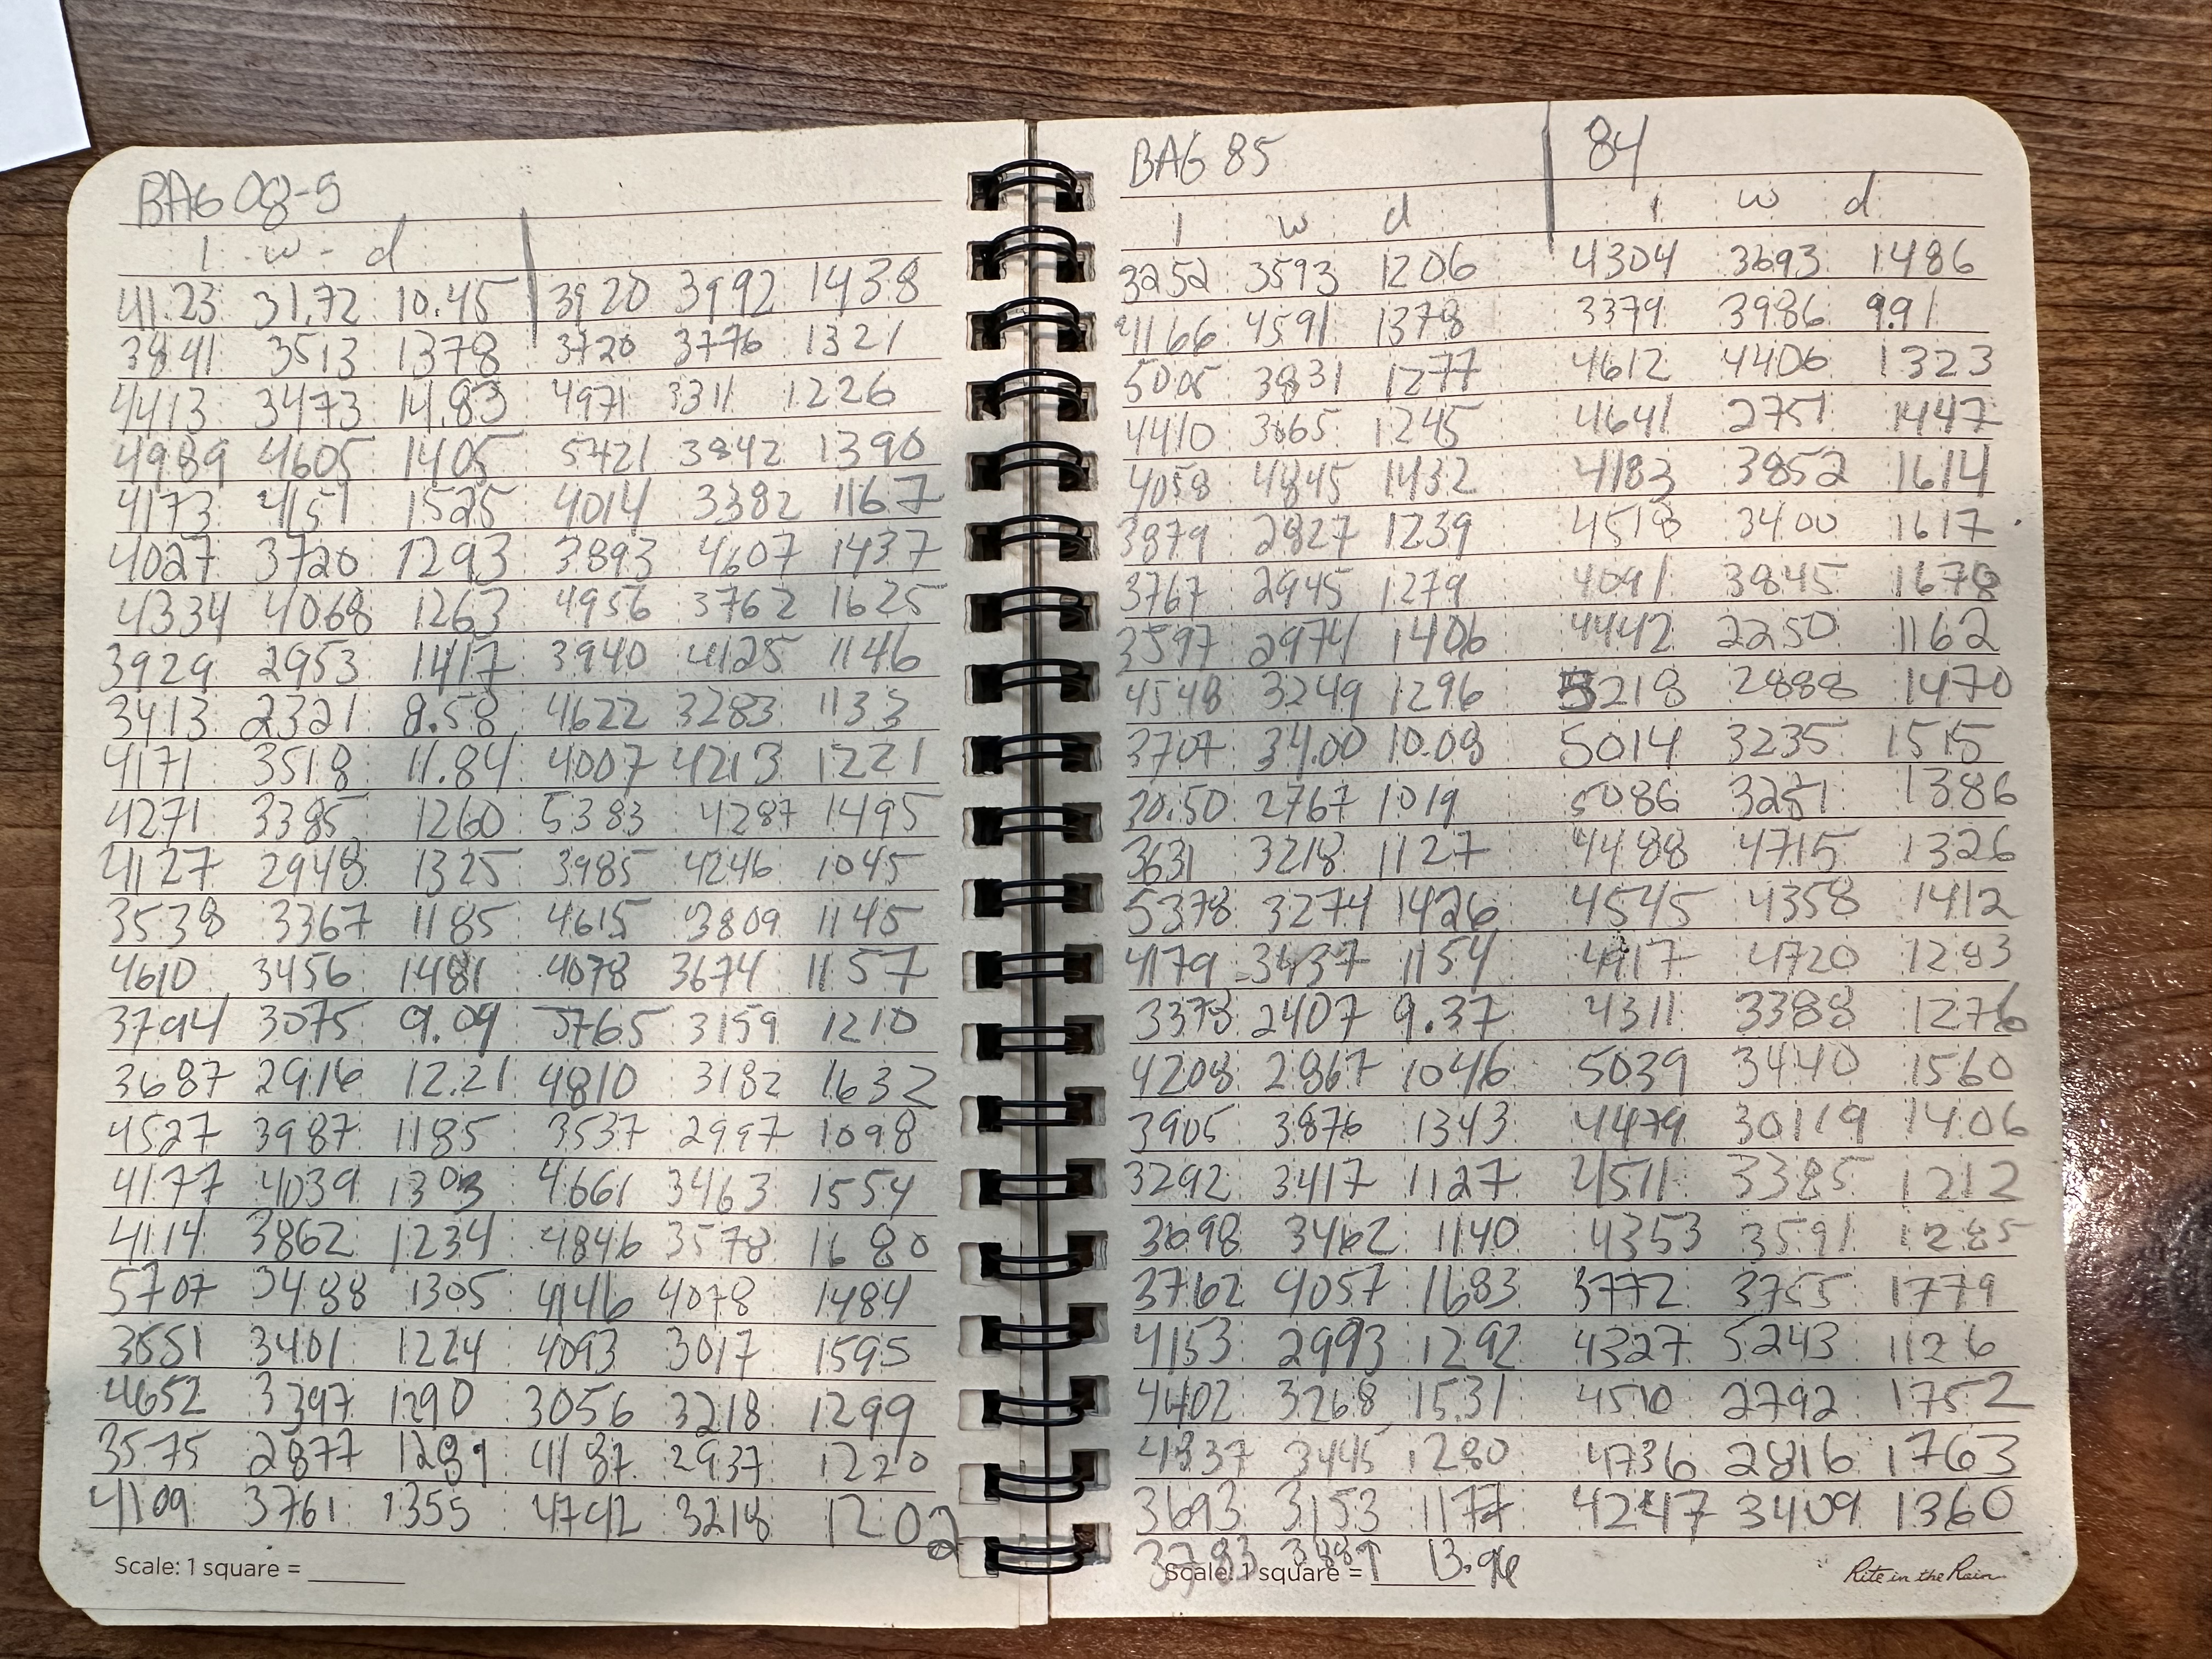 BA6 08-5
l w d
41.23 31.72 10.45 3920 3992 1438
3941 3513 1378 3720 3776 1321
4413 3473 1483 4971 3311 1226
4989 4605 1405 5721 3842 1390
4173 4151 1525 4014 3382 1167
4027 3720 1293 3893 4607 1437
4334 4068 1263 4956 3762 1625
3924 2953 1417 3940 4125 1146
3413 2321 8.58 4622 3283 1133
4171 3518 11.84 4007 4213 1221
4271 3395 1260 5383 4287 1495
4127 2948 1325 3485 4246 1045
3538 3367 1185 4615 3809 1145
4610 3456 1481 4678 3674 1157
3794 3075 9.04 3765 3159 1210
3687 2916 12.21 4810 3182 1632
4527 3987 1185 3537 2997 1098
4177 4039 1303 4661 3463 1554
4114 3862 1234 4846 3578 1680
5707 3488 1305 4146 4078 1484
3551 3401 1224 4093 3017 1595
4652 3397 1290 3056 3218 1299
3575 2877 1281 4187 2937 1220
4109 3761 1355 4742 3218 1202
Scale: 1 square =
BA6 85 84
l w d l w d
3052 3593 1206 4304 3693 1486
4166 4591 1378 3379 3986 9.91
5005 3831 1277 4612 4406 1323
4410 3665 1245 4641 2751 1447
4058 4845 1432 4183 3852 1614
3879 2827 1239 4518 3400 1617
3767 2945 1279 4041 3845 1678
3597 2974 1406 4442 2250 1162
4548 3249 1296 5218 2988 1470
3707 34.00 10.08 5014 3235 1515
30.50 2767 1019 5086 3251 1386
3631 3218 1127 4488 4715 1326
5378 3274 1426 4545 4358 1412
4179 3457 1154 4417 4720 1293
3373 2407 9.37 4311 3388 1276
4208 2867 1046 5039 3440 1560
3905 3876 1343 4479 3019 1406
3292 3417 1127 4511 3325 1212
3698 3462 1140 4353 3591 1285
3762 4057 1683 3772 3755 1779
4153 2993 1292 4327 5243 1126
4402 3268 15.31 4510 2792 1752
4337 3445 1280 4736 2916 1763
3693 3153 1177 4217 3409 1360
Scale: 1 square =
Rite in the Rain